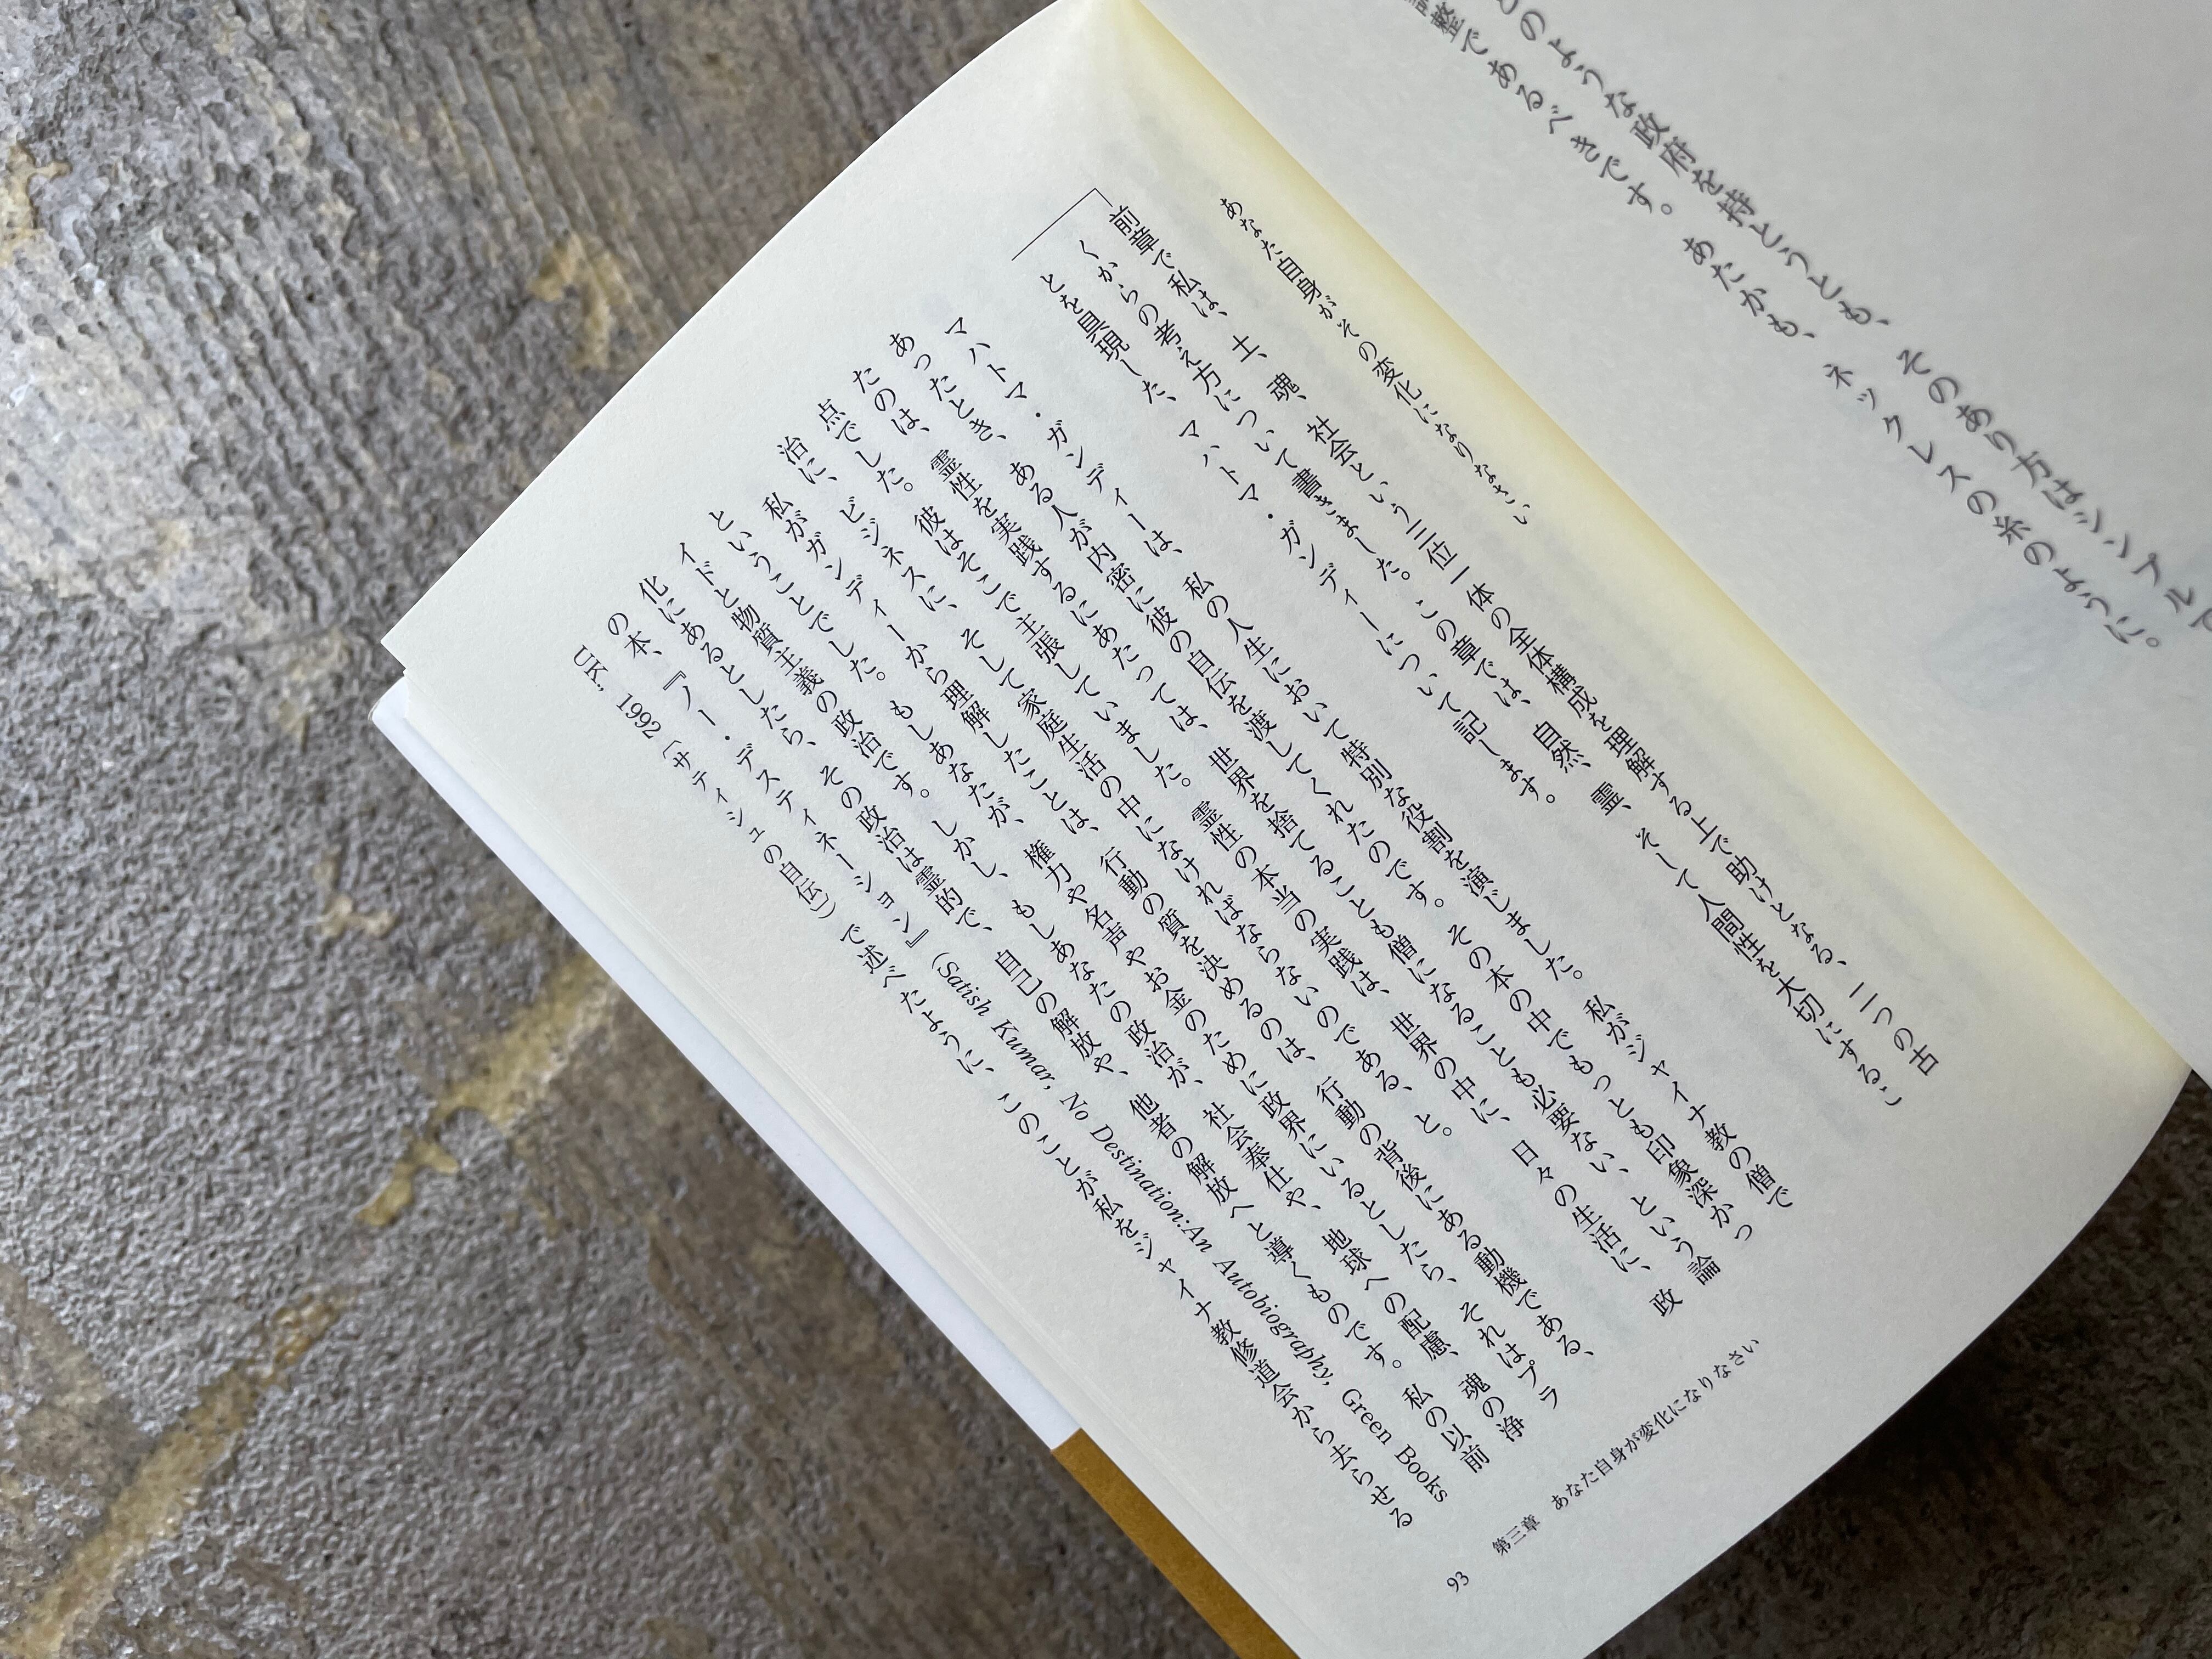 のような政府を持とうとも、そのあり方はシンプルで
整であるべきです。あたかも、ネックレスの糸のように。
あなた自身がその変化になりなさい
前章で私は、土、魂、社会という三位一体の全体構成を理解する上で助けとなる、二つの古
くからの考え方について書きました。この章では、自然、霊、そして人間性を大切にするこ
とを具現した、マハトマ・ガンディーについて記します。
マハトマ・ガンディーは、私の人生において特別な役割を演じました。私がジャイナ教の僧で
あったとき、ある人が内密に彼の自伝を渡してくれたのです。その本の中でもっとも印象深かっ
たのは、霊性を実践するにあたっては、世界を捨てることも僧になることも必要ない、という論
点でした。彼はそこで主張していました。霊性の本当の実践は、世界の中に、日々の生活に、政
治に、ビジネスに、そして家庭生活の中になければならないのである、と。
私がガンディーから理解したことは、行動の質を決めるのは、行動の背後にある動機である、
ということでした。もしあなたが、権力や名声やお金のために政界にいるとしたら、それはプラ
イドと物質主義の政治です。しかし、もしあなたの政治が、社会奉仕や、地球への配慮、魂の浄
化にあるとしたら、その政治は霊的で、自己の解放や、他者の解放へと導くものです。私の以前
の本、『ノー・デスティネーション』(Satish Kumar, No Destination:An Autobiography, Green Books
UK, 1992〔サティシュの自伝〕)で述べたように、このことが私をジャイナ教修道会から去らせる
93 第三章 あなた自身が変化になりなさい